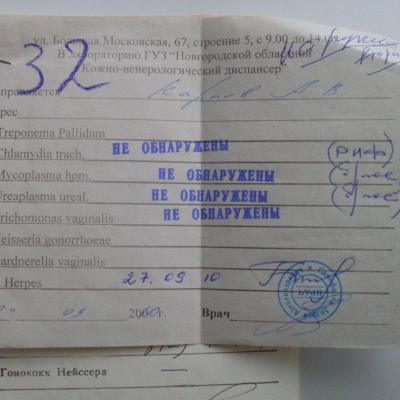 ул. Большая Московская, 67, строение 5, с 9.00 до 14.00
В лабораторию ГУЗ "Новгородской областной
Кожно-венерологический диспансер"
32
правляется Карпов А В
рес
Treponema Pallidum
Chlamydia trach. НЕ ОБНАРУЖЕНЫ (РИФ)
Mycoplasma hom. НЕ ОБНАРУЖЕНЫ
Ureaplasma ureal. НЕ ОБНАРУЖЕНЫ
Trichomonas vaginalis НЕ ОБНАРУЖЕНЫ
Neisseria gonorrhoeae
Gardnerella vaginalis
Herpes 27.09.10
" 09 200 г. Врач
ВРАЧ
Гонококк Нейссера